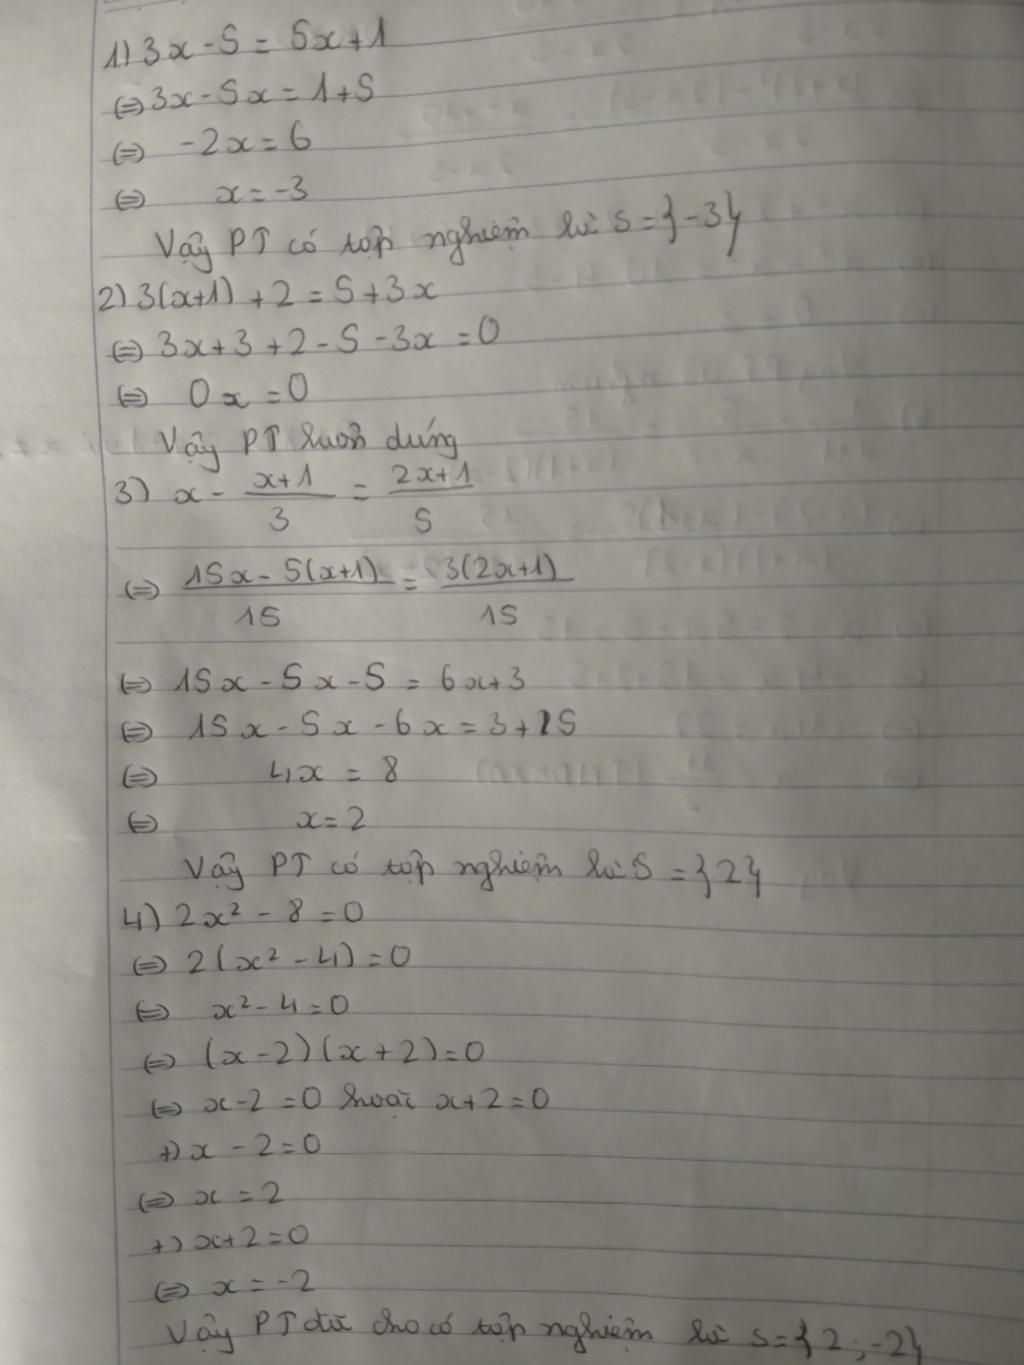 1) 3x - 5 = 5x + 1
⇔ 3x - 5x = 1 + 5
⇔ -2x = 6
⇔ x = -3
Vậy PT có tập nghiệm là S = {-3}
2) 3(x+1) + 2 = 5 + 3x
⇔ 3x + 3 + 2 - 5 - 3x = 0
⇔ 0x = 0
Vậy PT luôn đúng
3) x - (x+1)/3 = (2x+1)/5
⇔ (15x - 5(x+1))/15 = 3(2x+1)/15
⇔ 15x - 5x - 5 = 6x + 3
⇔ 15x - 5x - 6x = 3 + 5
⇔ 4x = 8
⇔ x = 2
Vậy PT có tập nghiệm là S = {2}
4) 2x² - 8 = 0
⇔ 2(x² - 4) = 0
⇔ x² - 4 = 0
⇔ (x - 2)(x + 2) = 0
⇔ x - 2 = 0 hoặc x + 2 = 0
+) x - 2 = 0
⇔ x = 2
+) x + 2 = 0
⇔ x = -2
Vậy PT đã cho có tập nghiệm là S = {2; -2}